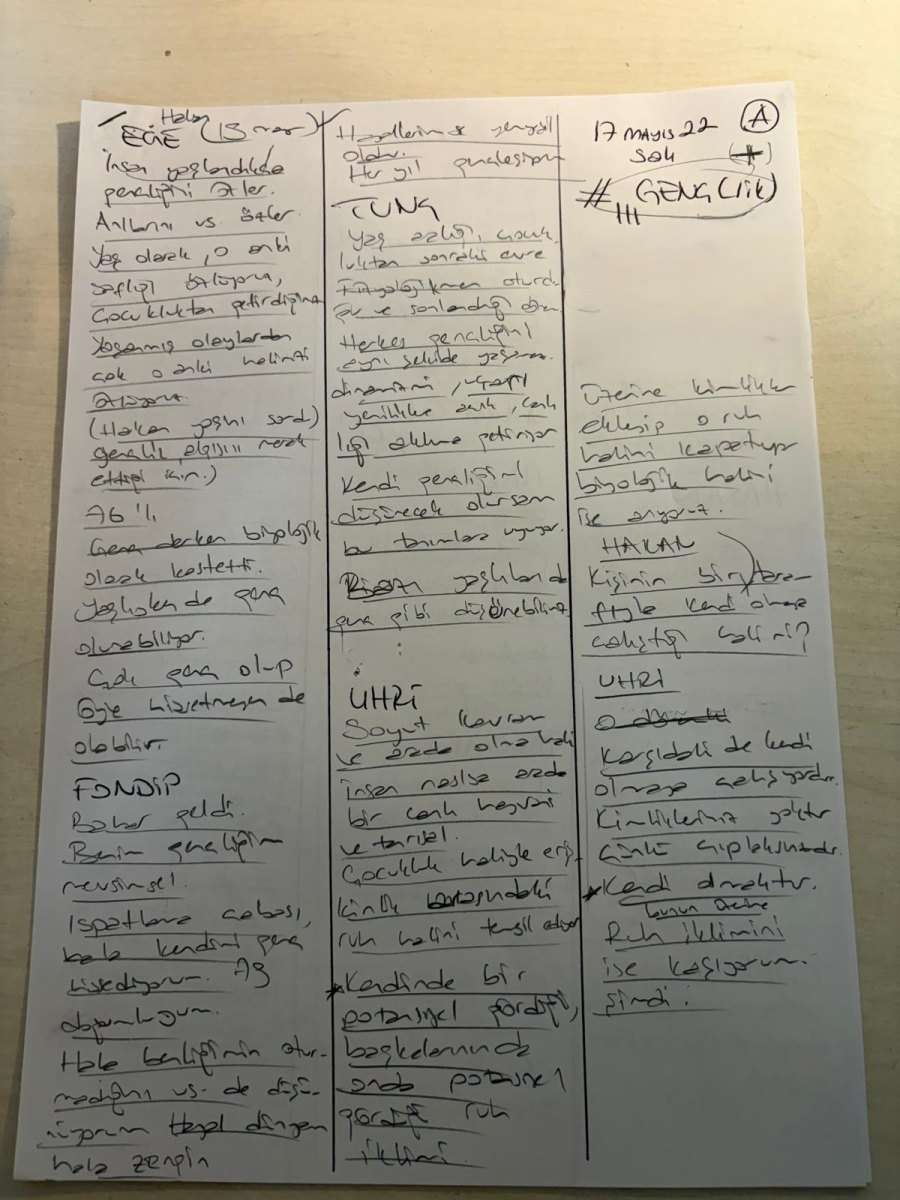 17 MAYIS 22
Salı
A
# GENÇ(lik)
EGE
İnsan yaşlandıkça
gençliğini özler.
Anılarını vs özler.
Yaş olarak, o anki
saflığı özlüyoruz,
Çocukluktan getirdiğimiz
Yaşanmış olaylardan
çok o anki halimizi
özlüyoruz.
(Hakan yaşını sordu)
gençlik algısını merak
ettiği için.)
36'lı
Genç derken biyolojik
olarak kastetti.
Yaşlıyken de genç
olunabiliyor.
Çok genç olup
öyle hissetmeyen de
olabilir.
Bahar geldi.
Benim gençliğim
mevsimsel.
Ispatlama çabası,
hala kendimi genç
hissediyorum. Aç
doğumluyum.
Hala benliğimin otur-
madığını vs. de düşü-
nüyorum Hayal dünyam
hala zengin
Hayallerimiz yeniyıl
olur.
Her yıl
TUNÇ
Yaş aralığı, çocuk
luktan sonraki evre
Fizyolojik oturdu
ğu ve sonlandığı dönem
Herkes gençliğini
aynı şekilde yaşamaz.
dinamizmi,
yeniliklere açık, canlı
lığı aklıma getiriyor
Kendi gençliğimi
düşünecek olursam
bu tanımlara uyuyor.
Bazı yaşlılar da
genç gibi düşünebilir
UHRİ
Soyut kavram
ve arada olma hali
İnsan nasılsa arada
bir canlı hayvani
ve tanrısal.
Çocukluk haliyle eriş
kinlik arasındaki
ruh halini temsil ediyor
* Kendinde bir
potansiyel gördüğü,
başkalarının da
onda potansiyel
gördüğü ruh
iklimi.
Üzerine kimlikler
ekleyip o ruh
halini kapatıyor
biyolojik halini
ise arıyoruz.
HAKAN
Kişinin bir tara-
fıyla kendi olmaya
çalıştığı hali mi?
UHRİ
Karşıdaki de kendi
olmaya çalışıyordur.
Kimlikleriniz yoktur
çünkü çıplaksınızdır.
* Kendi olmaktır.
bunun üzerine
Ruh iklimini
ise kaşıyorum
şimdi.